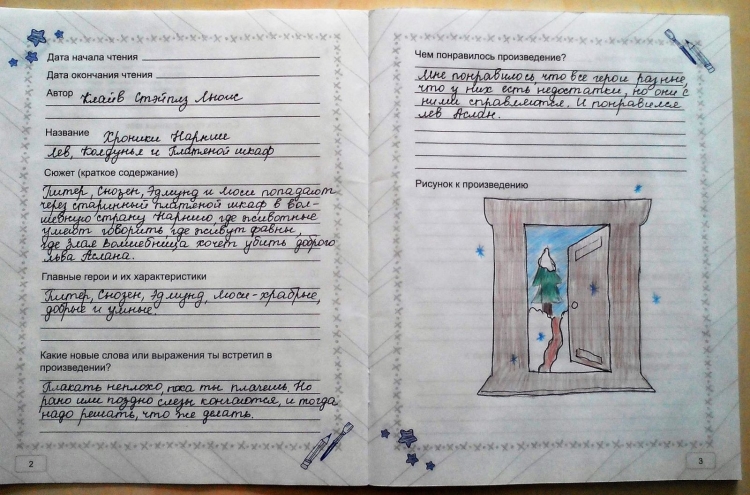 Дата начала чтения
Дата окончания чтения
Автор Клайв Стэйплз Льюис
Название Хроники Нарнии
Лев, Колдунья и Платяной шкаф
Сюжет (краткое содержание)
Питер, Сьюзен, Эдмунд и Люси попадают
через старинный платяной шкаф в вол-
шебную страну Нарнию где животные
умеют говорить где живут фавны,
где злая волшебница хочет убить доброго
льва Аслана.
Главные герои и их характеристики
Питер, Сьюзен, Эдмунд, Люси-храбрые,
добрые и умные.
Какие новые слова или выражения ты встретил в
произведении?
Плакать неплохо, пока ты плачешь. Но
рано или поздно слезы кончаются, и тогда
надо решать, что же делать.
2
Чем понравилось произведение?
Мне понравилось, что все герои разные,
что у них есть недостатки, но они с
ними справляются. И понравился
лев Аслан.
Рисунок к произведению
3